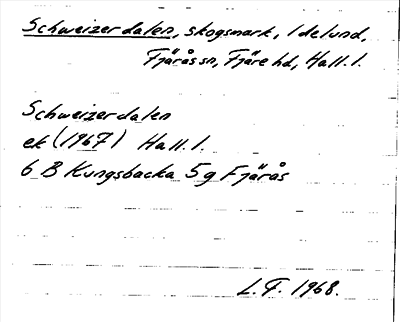 Schweizerdalen, skogsmark, Idelund,
Fjärås sn, Fjäre hd, Hall. l.
Schweizerdalen
ek (1967) Hall. l.
6 B Kungsbacka 5g Fjärås
L.F. 1968.